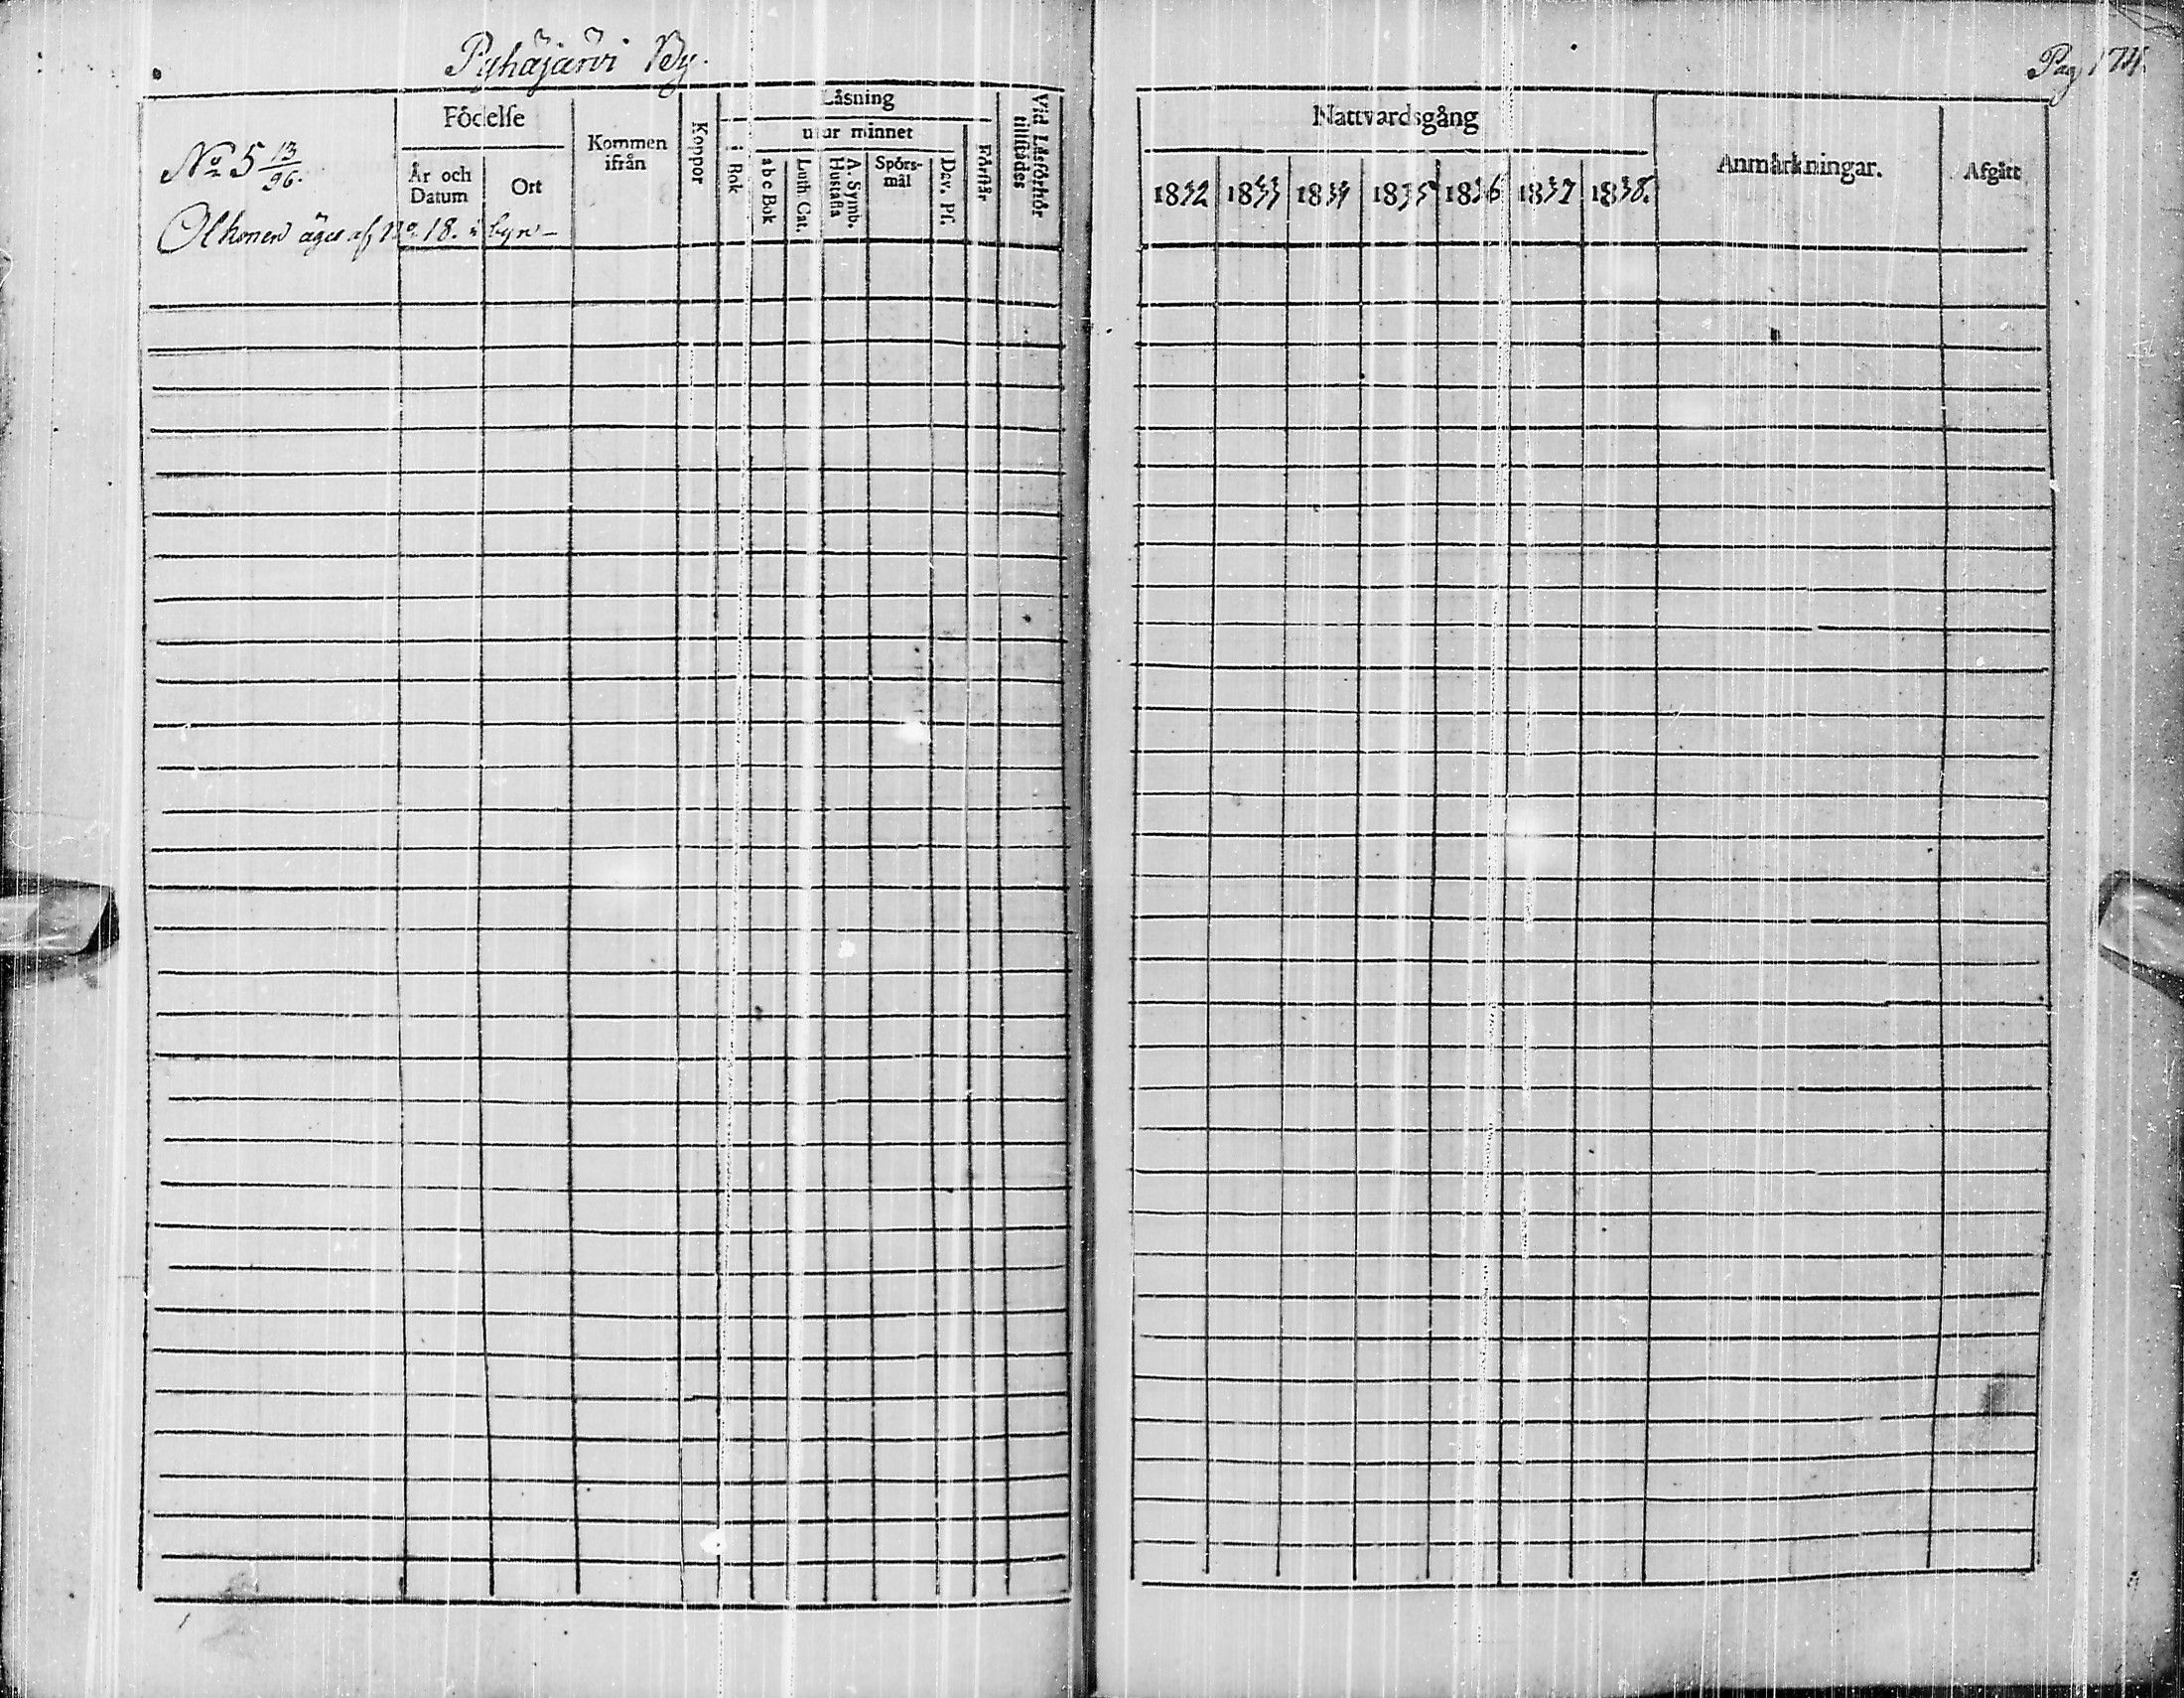 Pyhäjärvi By.
Pag 174.
No 5 13/96.
Olkonen äges af No 18. i byn –
Födelse
År och Datum
Ort
Kommen ifrån
Koppor
Läsning
i Bok
utur minnet
abc Bok
Luth. Cat.
A. Symb. Hustafla
Spörs-mål
Dav. Ps.
Förstår
Vid Läsförhör tillstädes
Nattvardsgång
1832 1833 1834 1835 1836 1837 1838.
Anmärkningar.
Afgått